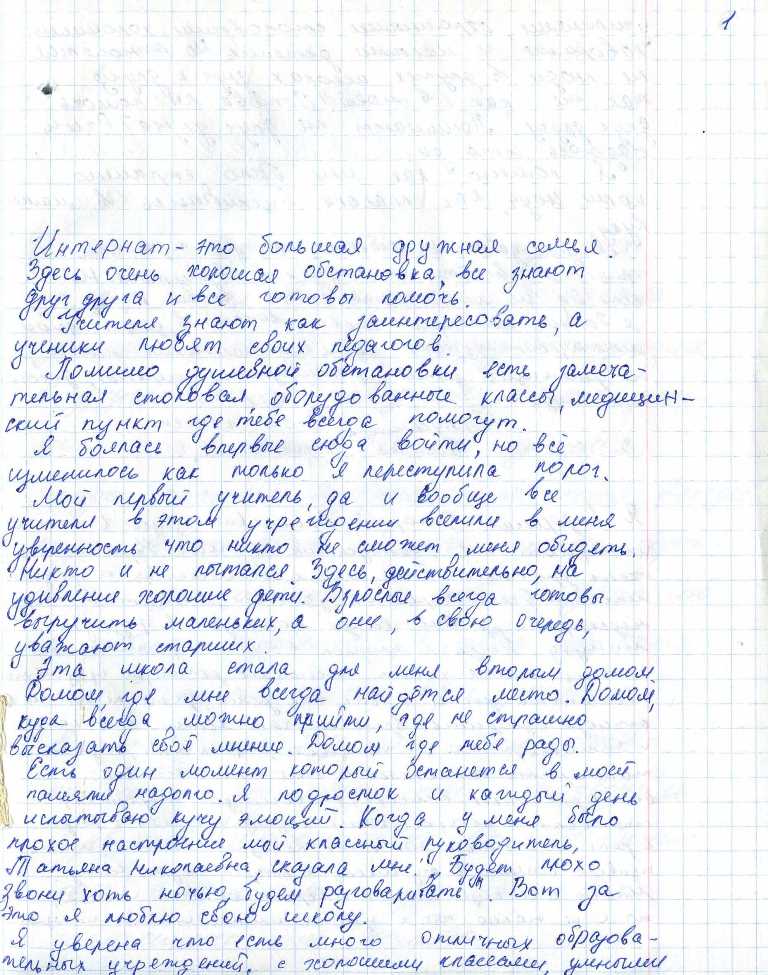 1
Интернат - это большая дружная семья.
Здесь очень хорошая обстановка, все знают
друг друга и все готовы помочь.
Учителя знают как заинтересовать, а
ученики любят своих педагогов.
Помимо душевной обстановки есть замеча-
тельная столовая, оборудованные классы, медицин-
ский пункт где тебе всегда помогут.
Я боялась впервые сюда войти, но всё
изменилось как только я переступила порог.
Мой первый учитель, да и вообще все
учителя в этом учреждении вселили в меня
уверенность что никто не сможет меня обидеть.
Никто и не пытался. Здесь, действительно, на
удивление хорошие дети. Взрослые всегда готовы
выручить маленьких, а они, в свою очередь,
уважают старших.
Эта школа стала для меня вторым домом.
Домом, где мне всегда найдётся место. Домом,
куда всегда можно прийти, где не страшно
высказать своё мнение. Домом где тебе рады.
Есть один момент который останется в моей
памяти надолго. Я подросток и каждый день
испытываю кучу эмоций. Когда у меня было
плохое настроение мой классный руководитель,
Татьяна Николаевна, сказала мне: „Будет плохо
звони хоть ночью, будем разговаривать". Вот за
это я люблю свою школу.
Я уверена что есть много отличных образова-
тельных учреждений, с хорошими классами, умными